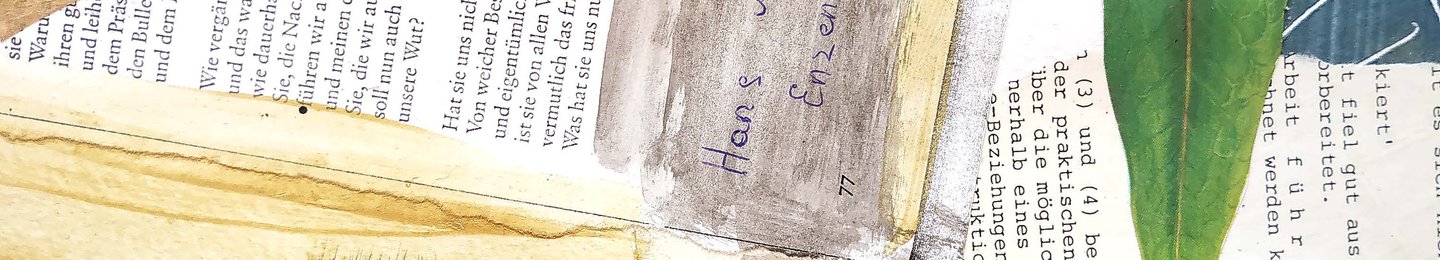 sie
Waru
ihren g
und leih
dem Präs
den Bulle
und dem
Wie vergä
und das wa
wie dauerha
Sie, die Nac
führen wir a
und meinen
Sie, die wir au
soll nun auch
unsere Wut?
Hat sie uns nich
Von weicher Bes
und eigentümlic
ist sie von allen V
vermutlich das fr
Was hat sie uns nu
Hans
Enzen
77
(3) und (4) be
der praktischen
über die möglic
nerhalb eines
e-Beziehungen
ruktio
kiert'
t fiel gut aus
orbereitet.
rbeit führ
hnet werden k